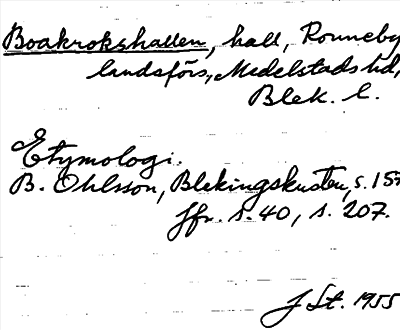 Boakrokshallen, hall, Ronneby
landsförs., Medelstads hd,
Blek. l.
Etymologi.
B. Ohlsson, Blekingskusten, s. 157
Jfr. s. 40, s. 207.
J St. 1955